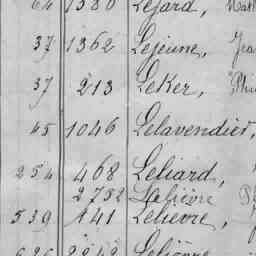 64 1380 Lejard,
37 1362 Lejeune,
37 213 Leker,
45 1046 Lelavendier,
254 468 Leliard,
2732 Lelièvre
539 141 Lelievre,
Lelièvre